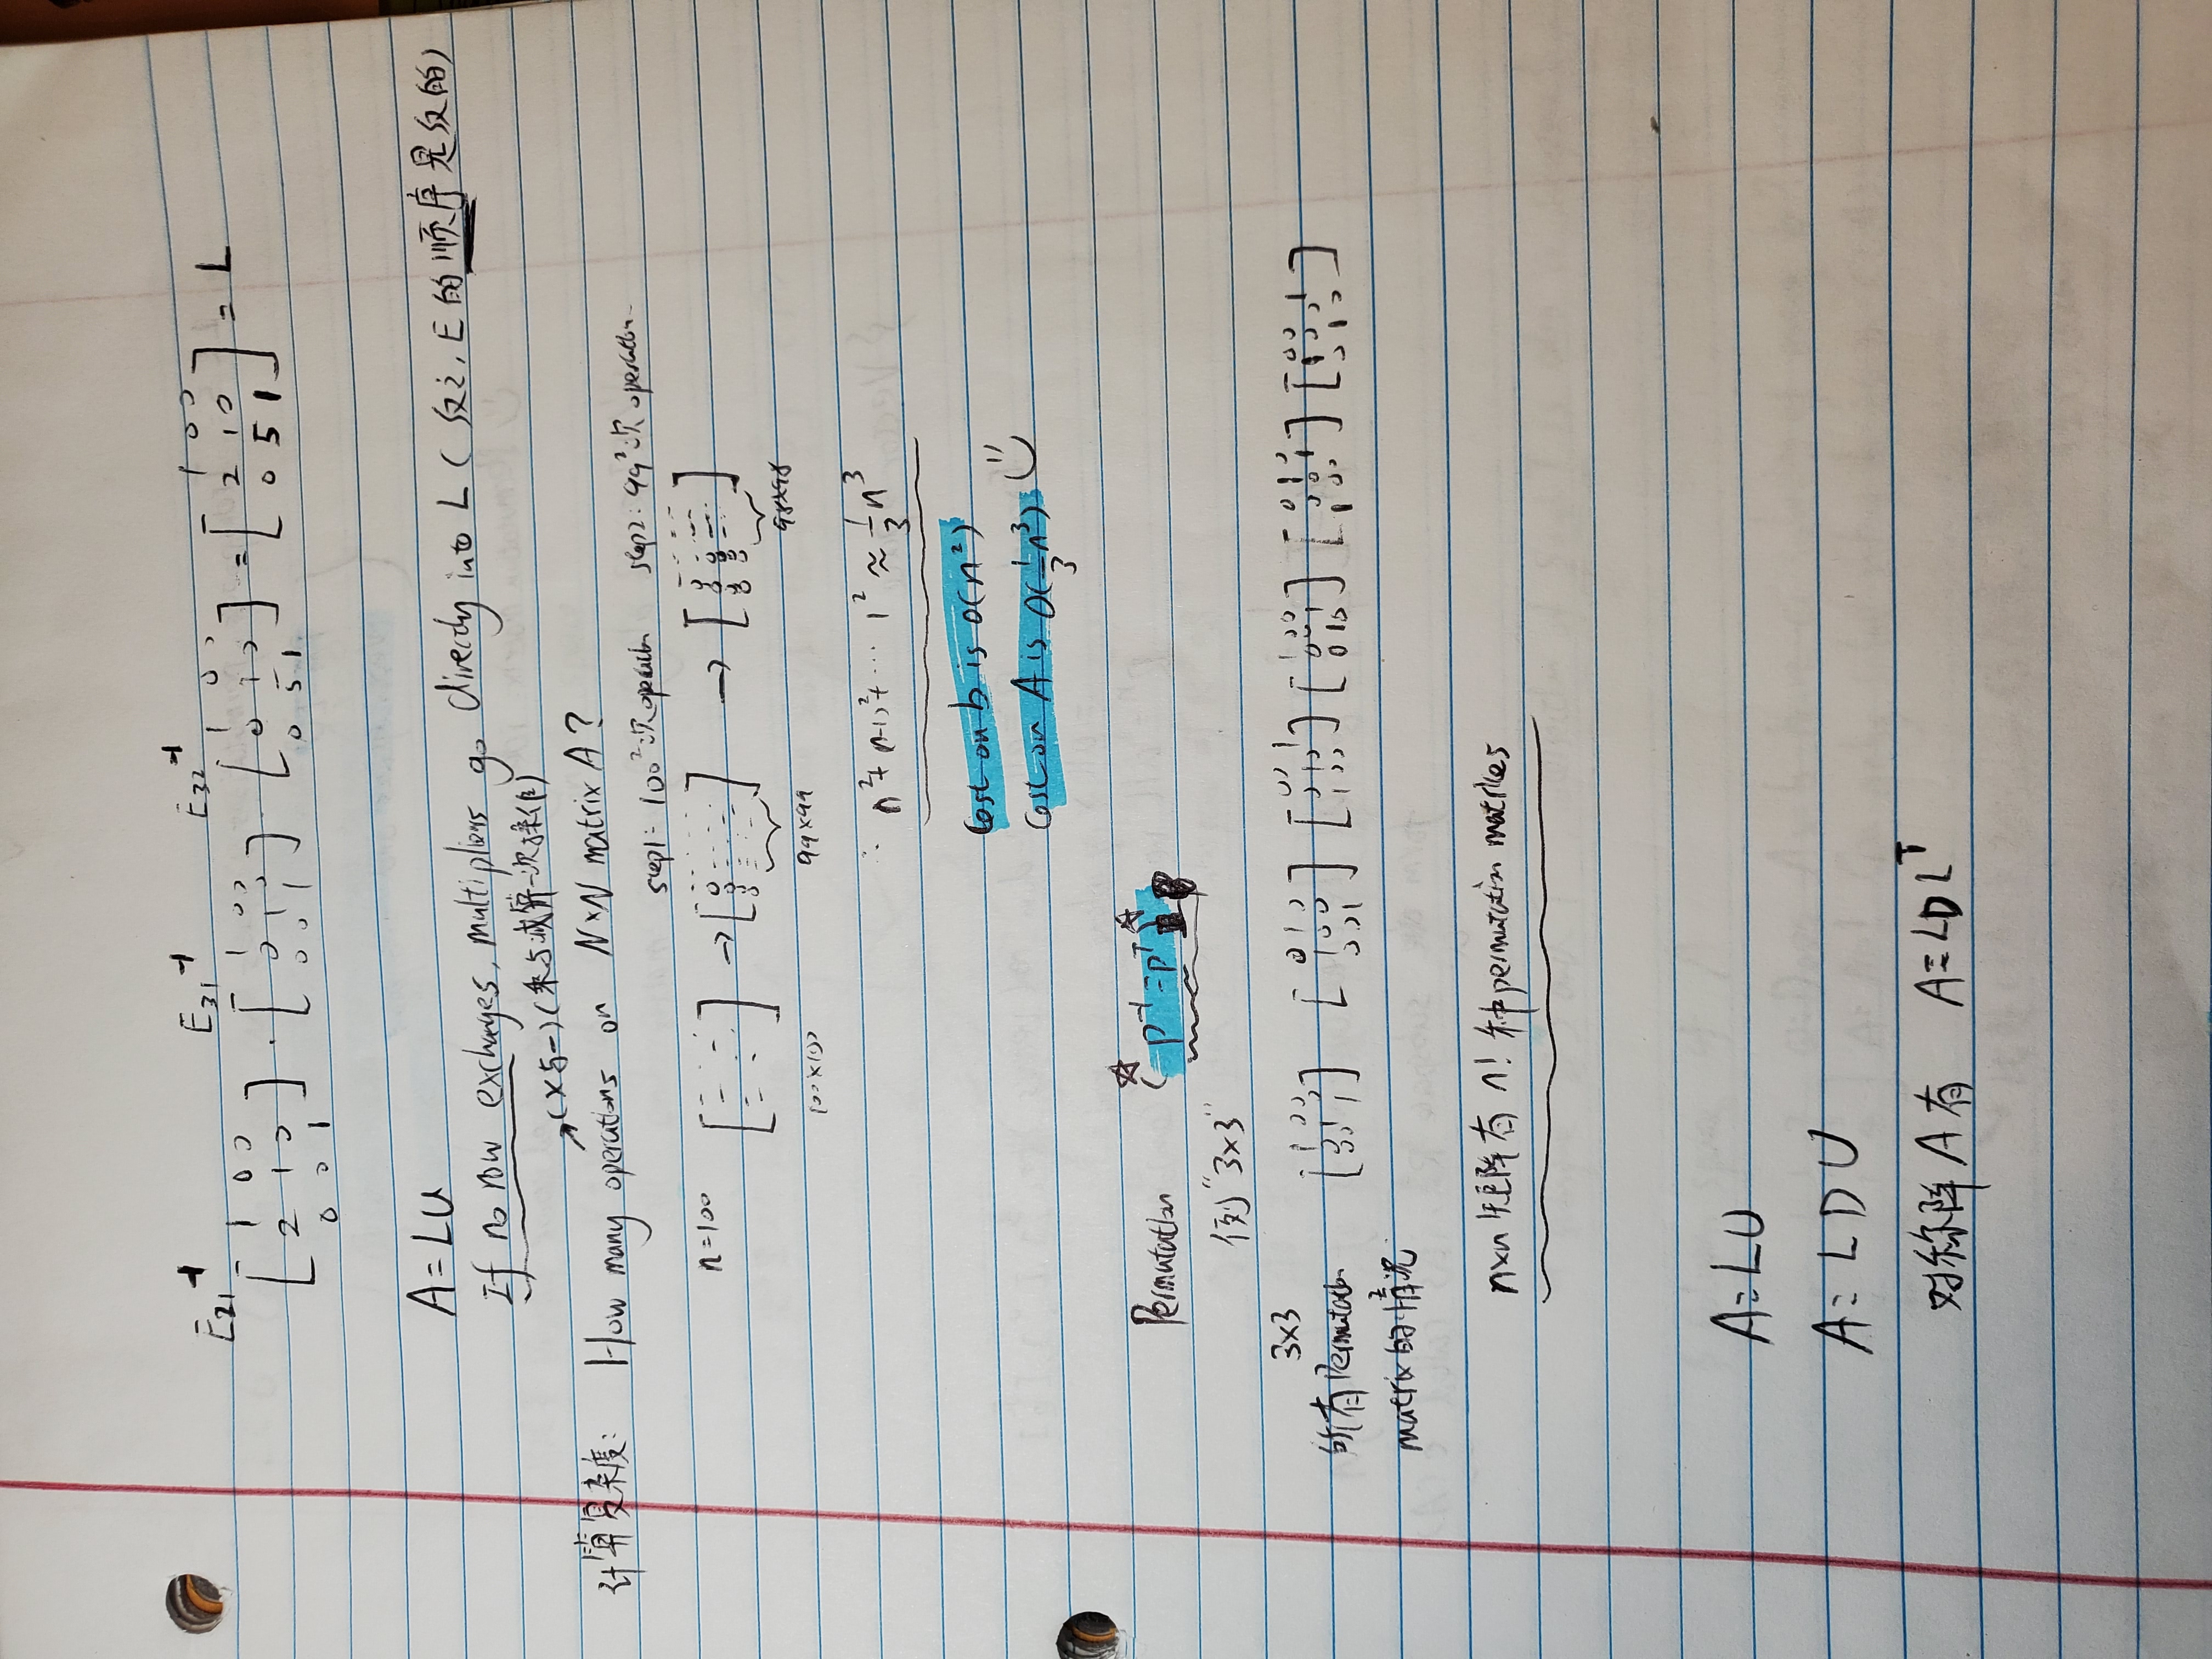 E21⁻¹ E31⁻¹ E32⁻¹
[1 0 0; 2 1 0; 0 0 1] · [1 0 0; 0 1 0; 0 0 1] · [1 0 0; 0 1 0; 0 5 1] = [1 0 0; 2 1 0; 0 5 1] = L
A=LU
If no row exchanges, multipliers go directly into L ( 反之, E的顺序是反的)
→(×与−)(乘与减算一次操作)
计算复杂度: How many operations on N×N matrix A?
step1: 100²次operation step2: 99²次operation
n=100 [ ] → [ ] → [ ]
100×100 99×99 98×98
∴ n²+(n-1)²+⋯ 1² ≈ 1/3 n³
Cost on b is O(n²)
Cost on A is O(1/3 n³)
Permutation (☆ P⁻¹=Pᵀ)☆
例"3×3"
3×3
所有Permutation
[1 0 0; 0 1 0; 0 0 1] [0 1 0; 1 0 0; 0 0 1] [0 0 1; 0 1 0; 1 0 0] [1 0 0; 0 0 1; 0 1 0] [0 1 0; 0 0 1; 1 0 0] [0 0 1; 1 0 0; 0 1 0]
matrix的情况
n×n矩阵有 n! 种permutation matrices
A=LU
A=LDU
对称阵A有 A=LDLᵀ